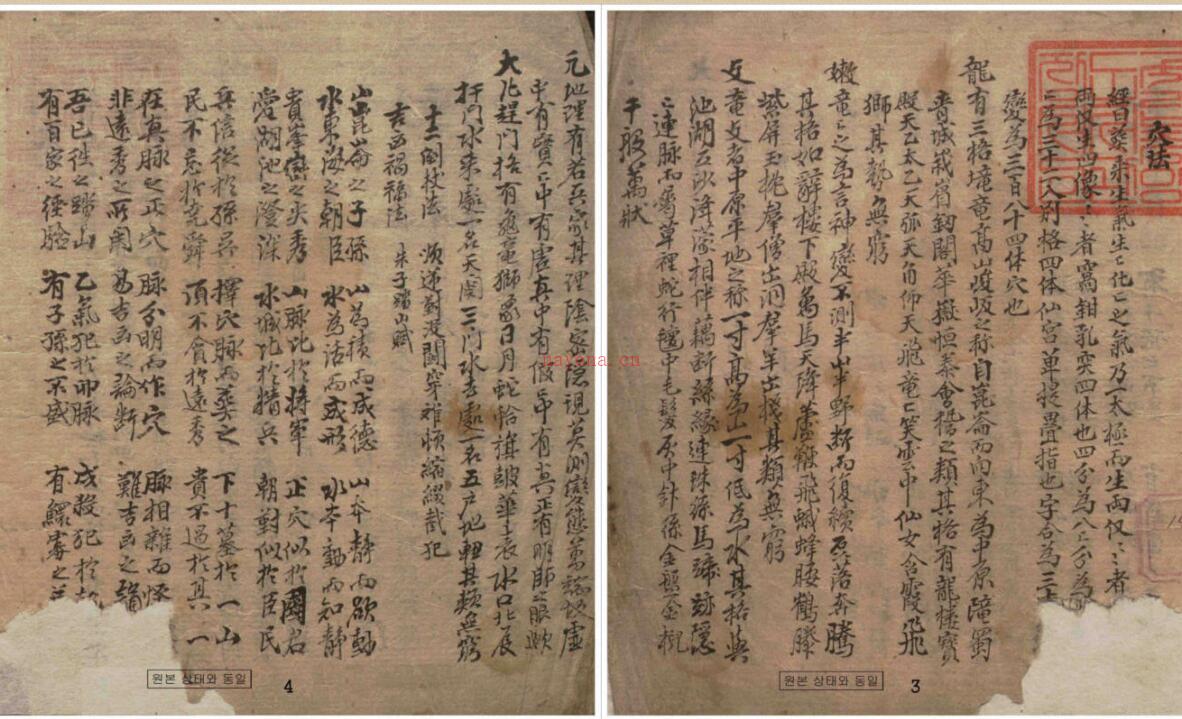 穴法
經曰葬乘生氣生亡化亡也氣乃一太極而生兩仪〻者
兩仪生四像〻者窩鉗乳突四体也四分為八〻分為
為三十二八別格四体仙宮單提疊指也字合為三十
變為三百八十四体穴也
龍有三格壠竜高山峻岅之称自崑崙而南東為中京隴蜀
青城
劒閣華嶽恒泰會稽之類其格有龍樓寶
殿天乙太乙天弧天角仰天飛竜亡笑雲中仙女含霞飛
獅其勢無窮
嫩竜亡之為言神變不測半山半野断而復續磊落奔騰
其格如辭樓下殿萬馬天降蘆鞭飛蛾蜂腰鶴膝
紫屏玉
羣僧出洞羣羊出棧其類無窮
支竜支者中原平地之称一寸高為山一寸低為水其格與
池湖五沙
相伴藕断絲緣連珠絲馬跡隱
〻連脉
草裡蛇行
中毛髮灰中針絲金盤金
千般萬狀
元地理有若兵家其理陰家隐現莫測變態萬端故虛
中有實〻中有虛真中有假〻中有真正有明師之眼
大凡
門格有龜竜獅象日月蛇
旗皷華表水口北辰
扦門水来處一名天関三門水去處一名五户地軸其類無窮
十二倒杖法 順逆對没開穿離
縮綴截犯
吉凶禍福法 朱子踏山賦
山崑崙之子孫 山為積而成德 山本静而欲動
水東海之朝臣 水為活而成形 水本動而知静
貴峯巒之尖秀 山脉比於将軍 正穴似於國君
愛湖池之澄深 水城比於精兵 朝對似於臣民
兵信從於孫吳 擇穴脉而葬之 下十墓於一山
民不忘於堯舜 頂不貪於遠秀 貴不過於其一
在真脉之正穴 脉分明而作穴 脉相雜而怪
非遠秀之所関 易吉凶之論断 難吉凶之
吾已往之踏山 乙氣犯於卯脉 戊殺犯於
有百家之經驗 有子孫之不盛 有鰥寡之
원본 상태와 동일
4
원본 상태와 동일
3
nayona.cn